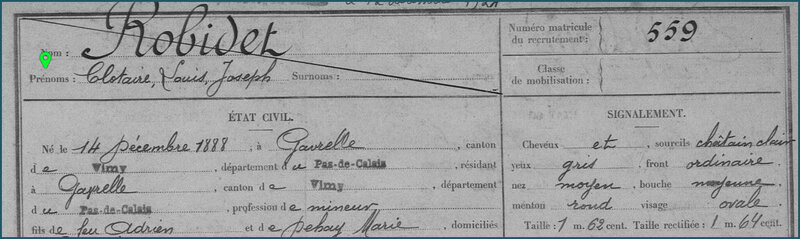 Nom : Robidet
Prénoms : Clotaire, Louis, Joseph Surnoms :
Numéro matricule du recrutement : 559
Classe de mobilisation :
ÉTAT CIVIL.
Né le 14 Décembre 1888, à Gavrelle, canton
de Vimy, département du Pas-de-Calais, résidant
à Gavrelle, canton de Vimy, département
du Pas-de-Calais, profession de mineur
fils de feu Adrien et de Dehay Marie, domiciliés
SIGNALEMENT.
Cheveux et sourcils châtain clair
yeux gris, front ordinaire
nez moyen, bouche moyenne
menton rond visage ovale
Taille : 1 m. 62 cent. Taille rectifiée : 1 m. 64 cent.